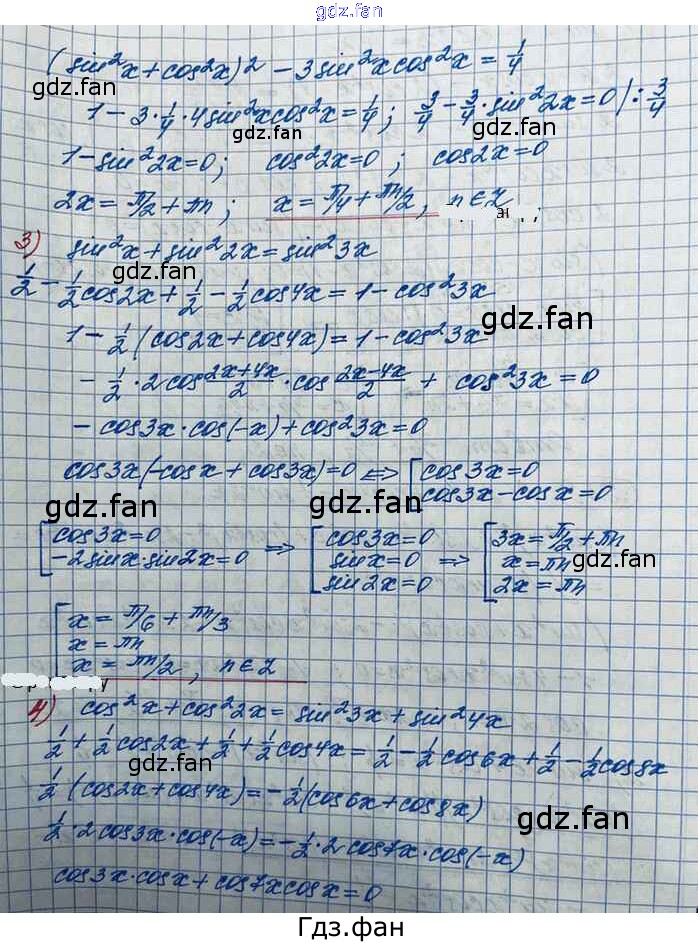 gdz.fan
(sin²x+cos²x)2 - 3sin²xcos²x = 1/4
gdz.fan gdz.fan
1-3·1/4·4sin²xcos²x=1/4; 3/4-3/4·sin²2x=0 |:3/4
gdz.fan gdz.fan
1-sin²2x=0; cos²2x=0; cos2x=0
2x=π/2+πn; x=π/4+πn/2, n∈Z
3) sin²x+sin²2x=sin²3x
gdz.fan
1/2-1/2cos2x+1/2-1/2cos4x=1-cos²3x
gdz.fan
1-1/2(cos2x+cos4x)=1-cos²3x
-1/2·2cos(2x+4x)/2·cos(2x-4x)/2+cos²3x=0
-cos3x·cos(-x)+cos²3x=0
cos3x(-cosx+cos3x)=0 <=> [cos3x=0
cos3x-cosx=0
gdz.fan gdz.fan
[cos3x=0 => [cos3x=0 => [3x=π/2+πn
-2sinx·sin2x=0 sinx=0 x=πn
sin2x=0 2x=πn
gdz.fan gdz.fan
[x=π/6+πn/3
x=πn
x=πn/2, n∈Z
4) cos²x+cos²2x=sin²3x+sin²4x
1/2+1/2cos2x+1/2+1/2cos4x=1/2-1/2cos6x+1/2-1/2cos8x
gdz.fan gdz.fan
1/2(cos2x+cos4x)=-1/2(cos6x+cos8x)
gdz.fan
1/2·2cos3x·cos(-x)=-1/2·2cos7x·cos(-x)
cos3x·cosx+cos7xcosx=0
gdz.fan
Гдз.фан